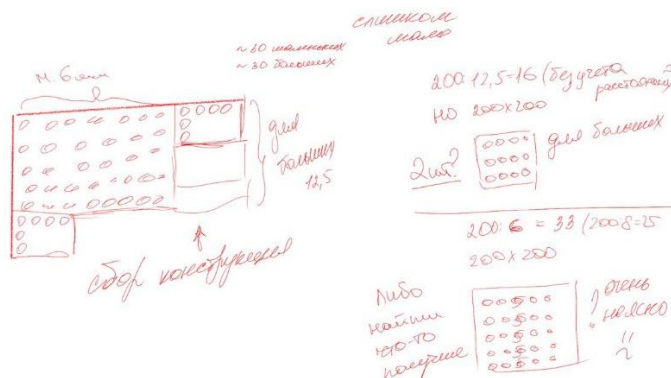 слишком
мало
~ 30 маленьких
~ 30 больших
м. 6 ями
для
больших
12,5
сбор конструкция
200:12,5=16 (без учета
расстояния
но 200х200
2шт?
для больших
200:6 = 33 (200:8=25
200х200
Либо
найти
что-то
получше
? очень
неясно